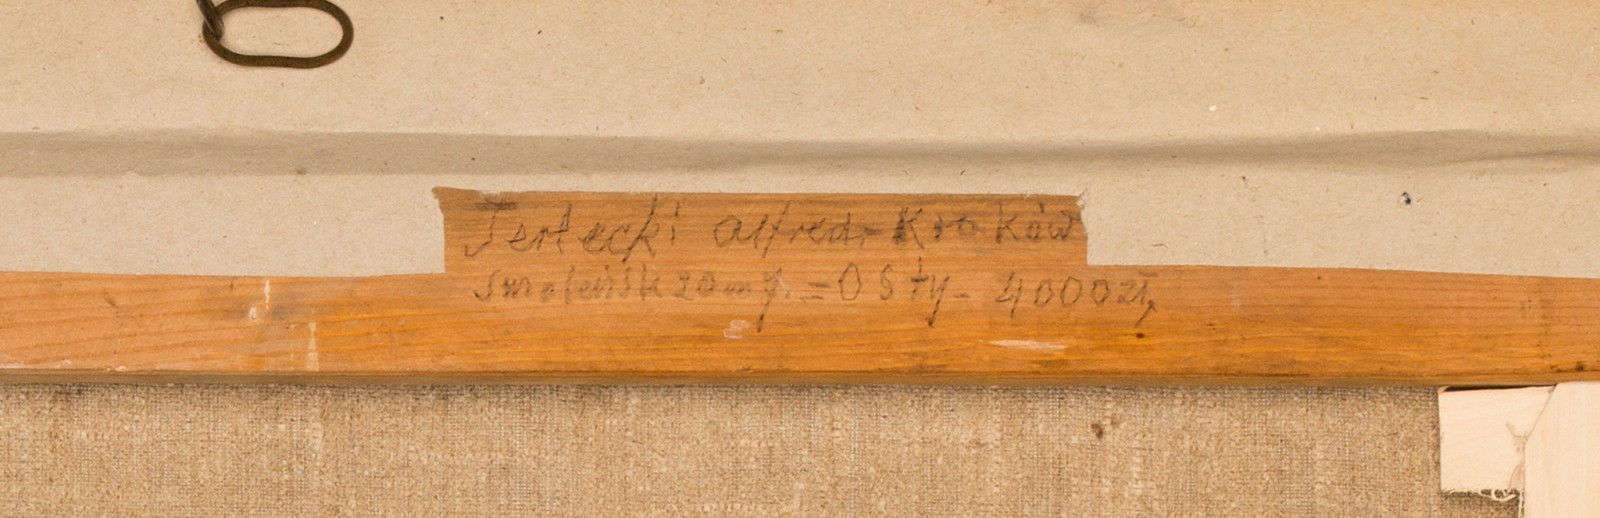 Terlecki Alfred - Kraków
Smoleńsk 20 m 7. = OSty - 4000 zł,